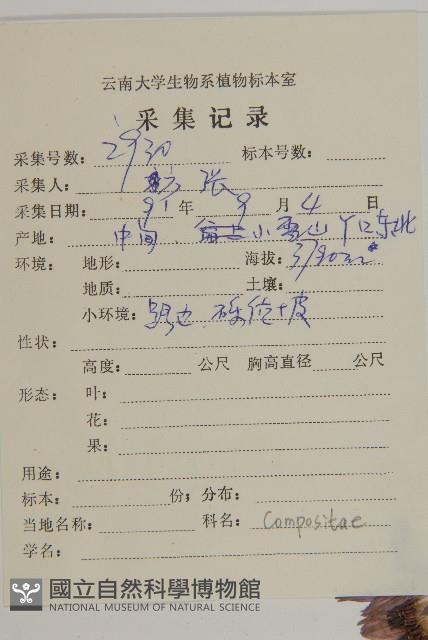 云南大学生物系植物标本室
采集记录
采集号数: 标本号数:
采集人: 张
采集日期: 91 年 9 月 4 日
产地: 中甸、小雪山丫口东北
环境: 地形: 海拔: 3790m
地质: 土壤:
小环境: 路边
性状:
高度: 公尺 胸高直径 公尺
形态: 叶:
花:
果:
用途:
标本: 份; 分布:
当地名称: 科名: Compositae
学名:
國立自然科學博物館
NATIONAL MUSEUM OF NATURAL SCIENCE